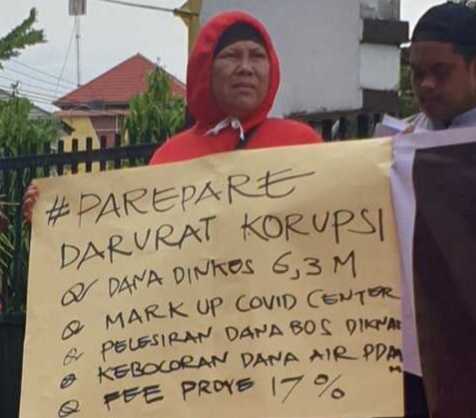 # PAREPARE
DARURAT KORUPSI
DANA DINKES 6,3 M
MARK UP COVID CENTER
PELESIRAN DANA BOS
KEBOCORAN DANA AIR PDAM
FEE PROYE 17%